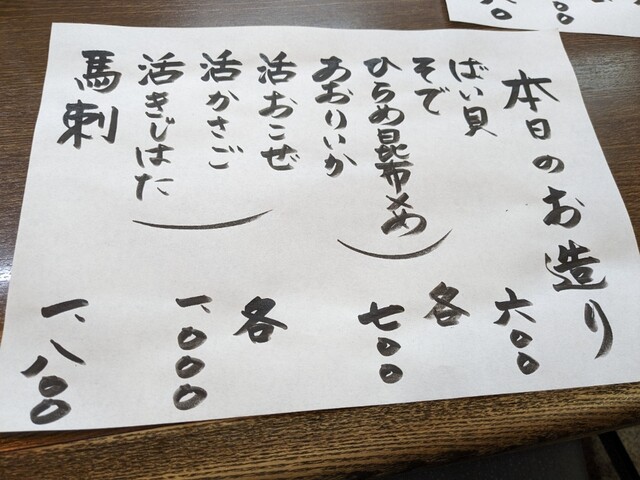 本日のお造り
ばい貝 六〇〇
そで
ひらめ昆布〆め
あおりいか
各 七〇〇
活おこぜ
活かさご
活きじはた
各 一、〇〇〇
馬刺 一、八〇〇